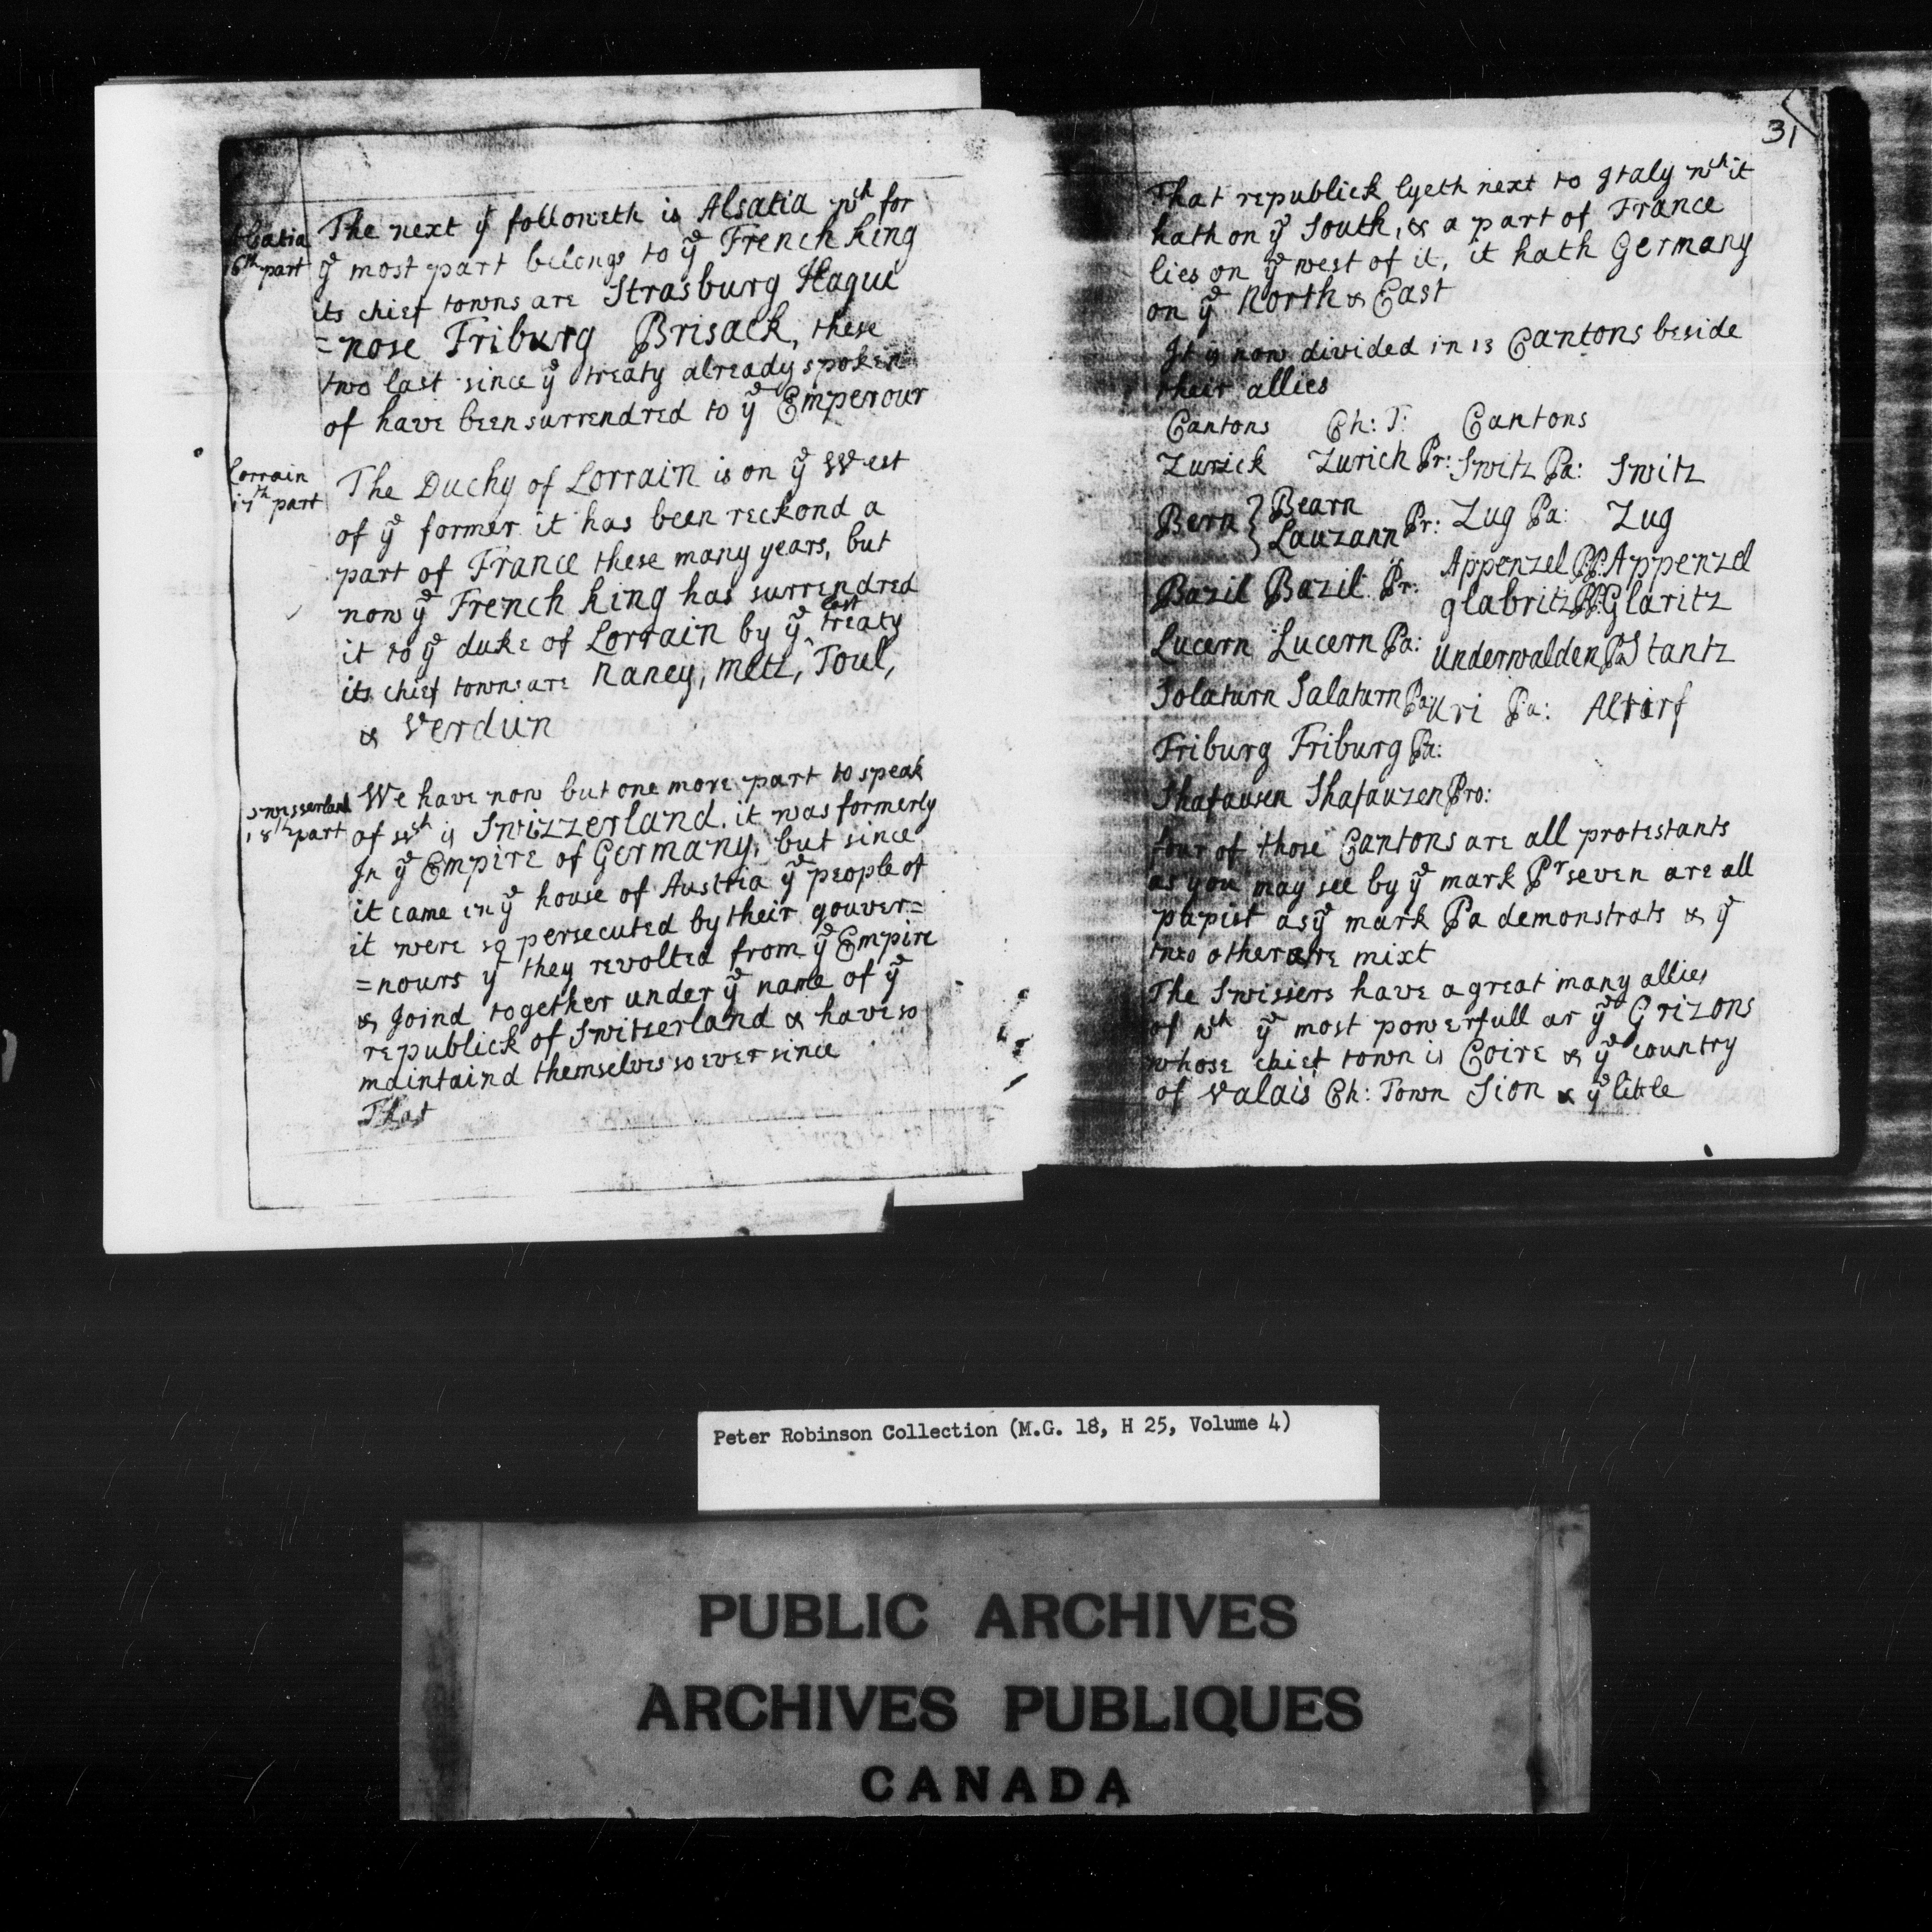 Alsatia
16th part
The next yt followeth is Alsatia wch for
ye most part belongs to ye French king
its chief towns are Strasburg Hague
=nose Friburg Brisack, these
two last since ye treaty already spoken
of have been surrendred to ye Emperour
Lorrain
17th part
The Duchy of Lorrain is on ye West
of ye former it has been reckond a
part of France these many years, but
now ye French king has surrendred
it to ye duke of Lorrain by ye last treaty
its chief towns are Nancy, Metz, Toul,
& Verdun
Swisserland
18th part
We have now but one more part to speak
of wch is Swizzerland. it was formerly
In ye Empire of Germany, but since
it came in ye house of Austria ye people of
it were so persecuted by their gouver=
=nours yt they revolted from ye Empire
& Joind together under ye name of ye
republick of Switserland & have so
maintaind themselves so ever since
That
31
That republick lyeth next to Italy wch it
hath on ye South, & a part of France
lies on ye west of it, it hath Germany
on ye North & East
It is now divided in 13 Cantons beside
their allies
Cantons Ch: T: Cantons
Zurick Zurich Pr: Switz Pa: Switz
Bern } Bearn Lauzann Pr: Zug Pa: Zug
Appenzel PP Appenzel
Bazil Bazil Pr: glabritz PP Glaritz
Lucern Lucern Pa: Underwalden Pa Stantz
Solaturn Salaturn Pa: Uri Pa: Altorf
Friburg Friburg Pa:
Shafausen Shafauzen Pro:
four of those Cantons are all protestants
as you may see by ye mark Pr seven are all
papist as ye mark Pa demonstrats & ye
two other are mixt
The Swissers have a great many allies
of wch ye most powerfull ar ye Grizons
whose chief town is Coire & ye country
of Valais Ch: Town Sion & ye little
Peter Robinson Collection (M.G. 18, H 25, Volume 4)
PUBLIC ARCHIVES
ARCHIVES PUBLIQUES
CANADA